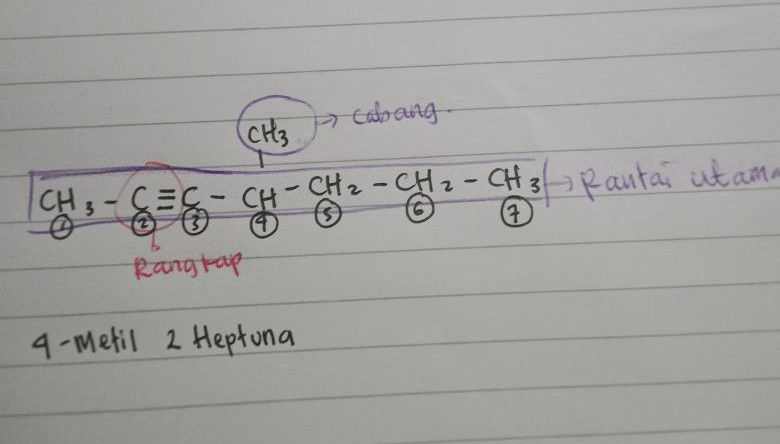 CH3 → Cabang.
CH3 - C ≡ C - CH - CH2 - CH2 - CH3 → Rantai utama
1 2 3 4 5 6 7
Rangkap
4-Metil 2 Heptuna